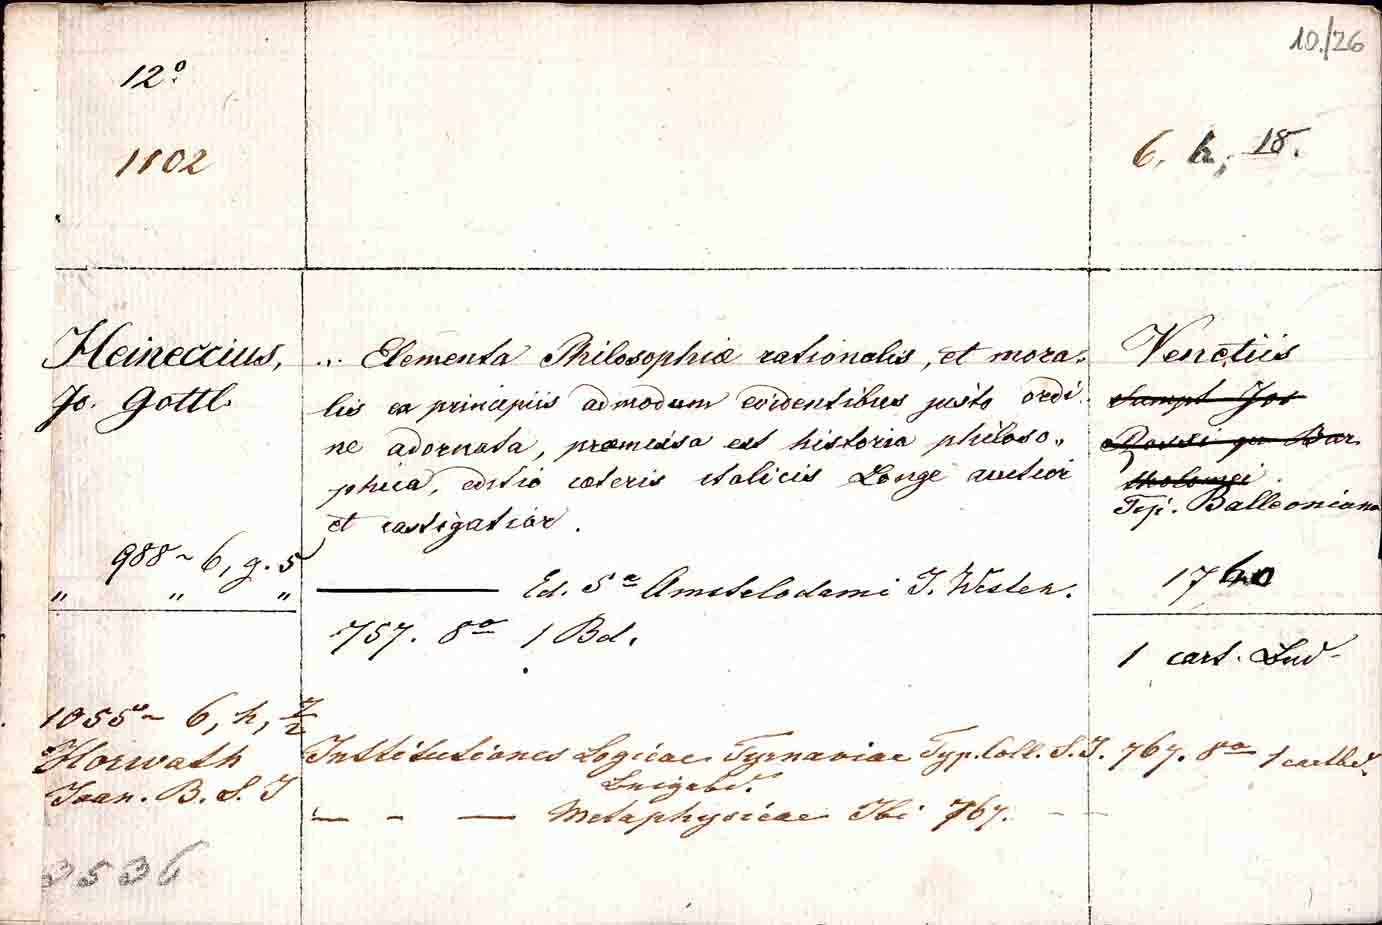 10./26
12º
1102
6. h, 18.
Heineccius,
Jo. Gottl.
Elementa Philosophiæ rationalis, et mora-
lis ex principiis admodum evidentibus justo ordi-
ne adornata, præmissa est historia philoso-
phica, editio cæteris italicis Longe auctior
et castigatior.
Venetiis
Sumpt Jos
Rossi qu Bar
tholomei
Typ. Balleoniana
1760
1 cart. Bnd
988 ~ 6, g. 5
" " "
Ed. 5ª Amstelodami J. Westen.
757. 8º 1 Bd.
1055 ~ 6, h, 7/2
Horwath
Joan. B. S. J
Institutiones Logicae Tyrnaviae Typ. Coll. S. J. 767. 8º 1 cartbd.
— - — Metaphysicae Ibi 767. - -
3536